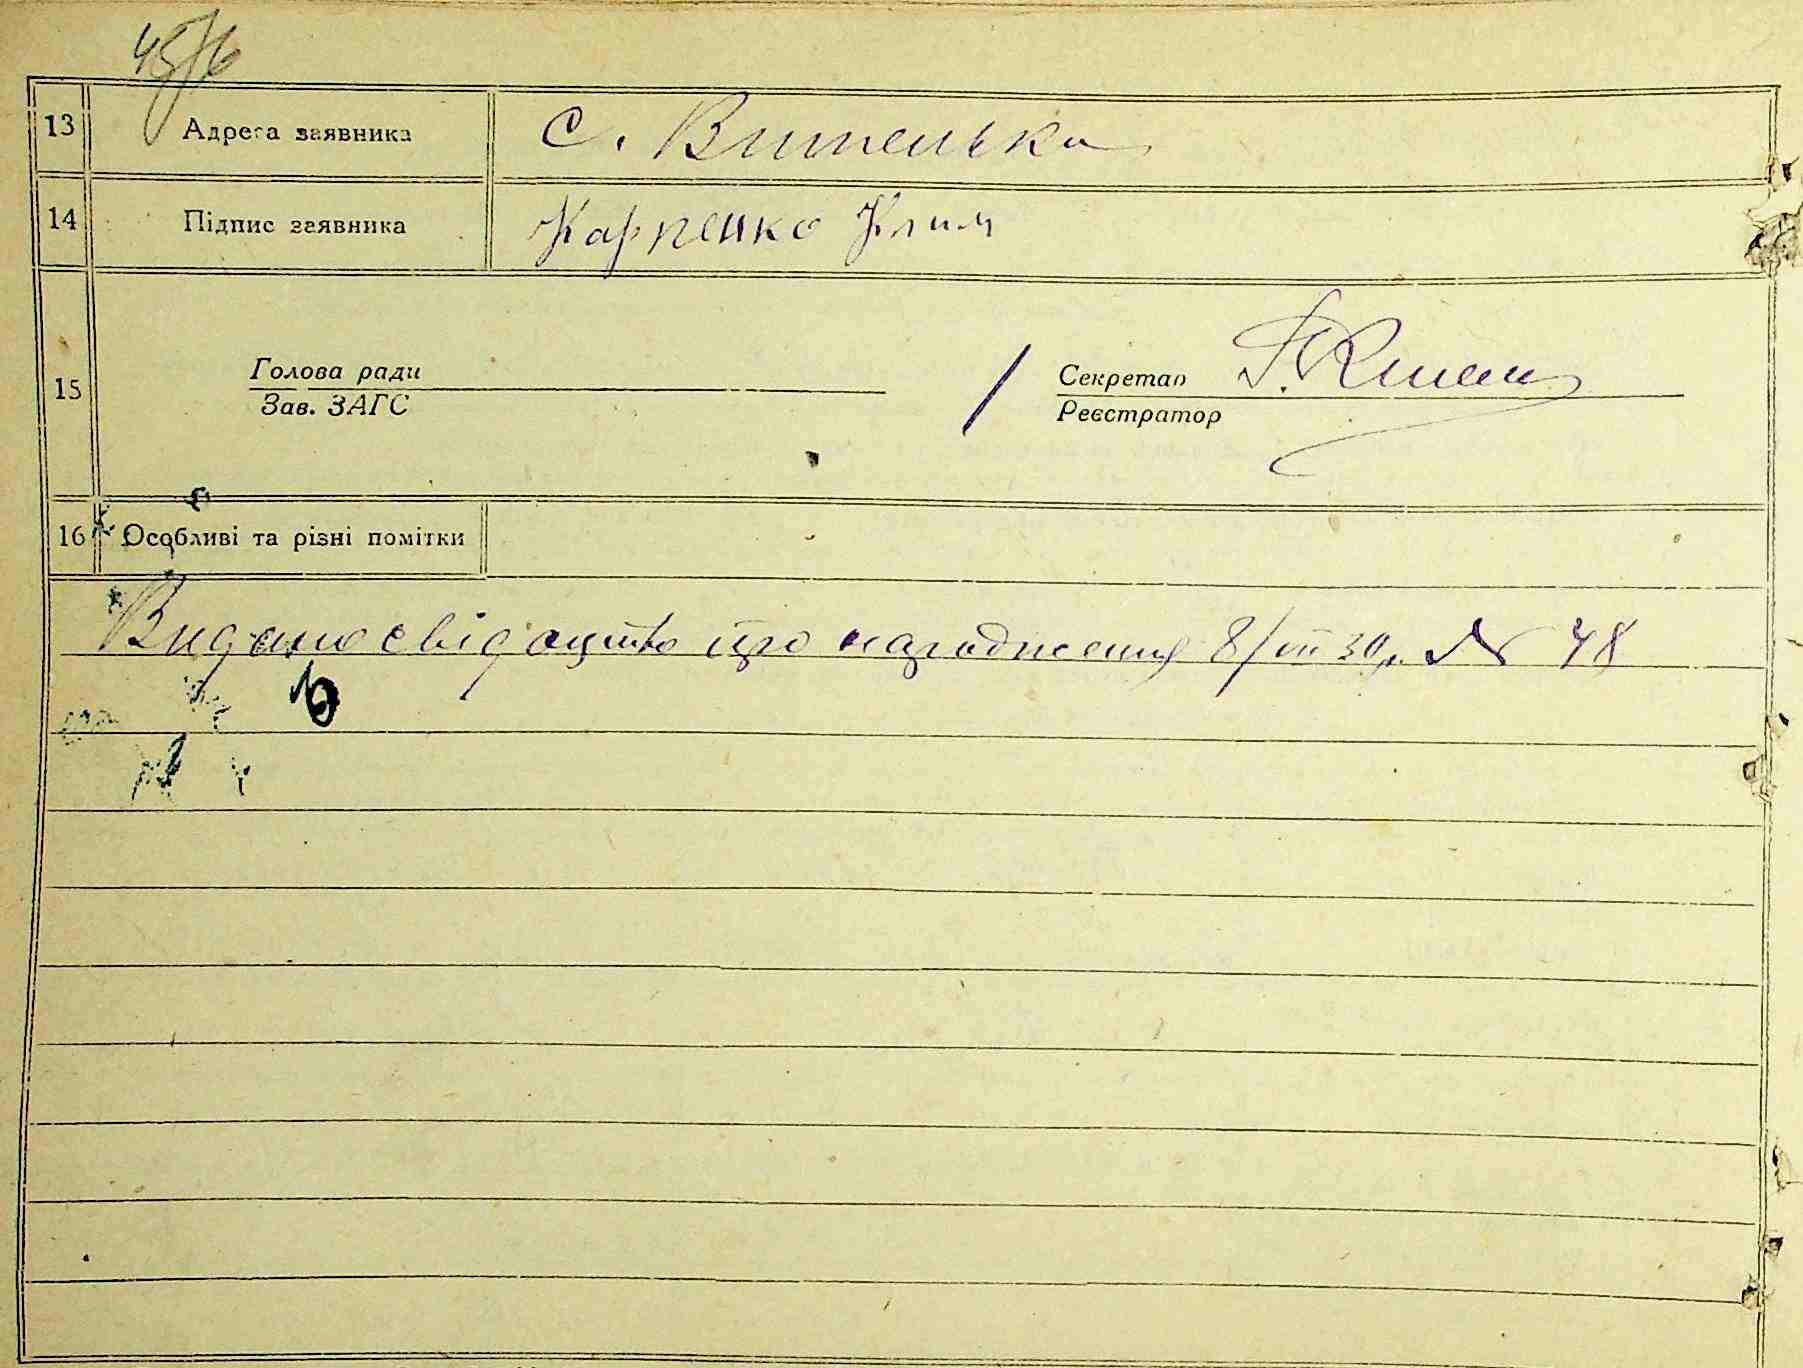 13 Адреса заявника с. Вителька
14 Підпис заявника Карпенко Клим
15 Голова ради Секретар
Зав. ЗАГС Реєстратор
16 Особливі та різні помітки
Видано свідоцтво про народження 8/VII 30 р. № 48